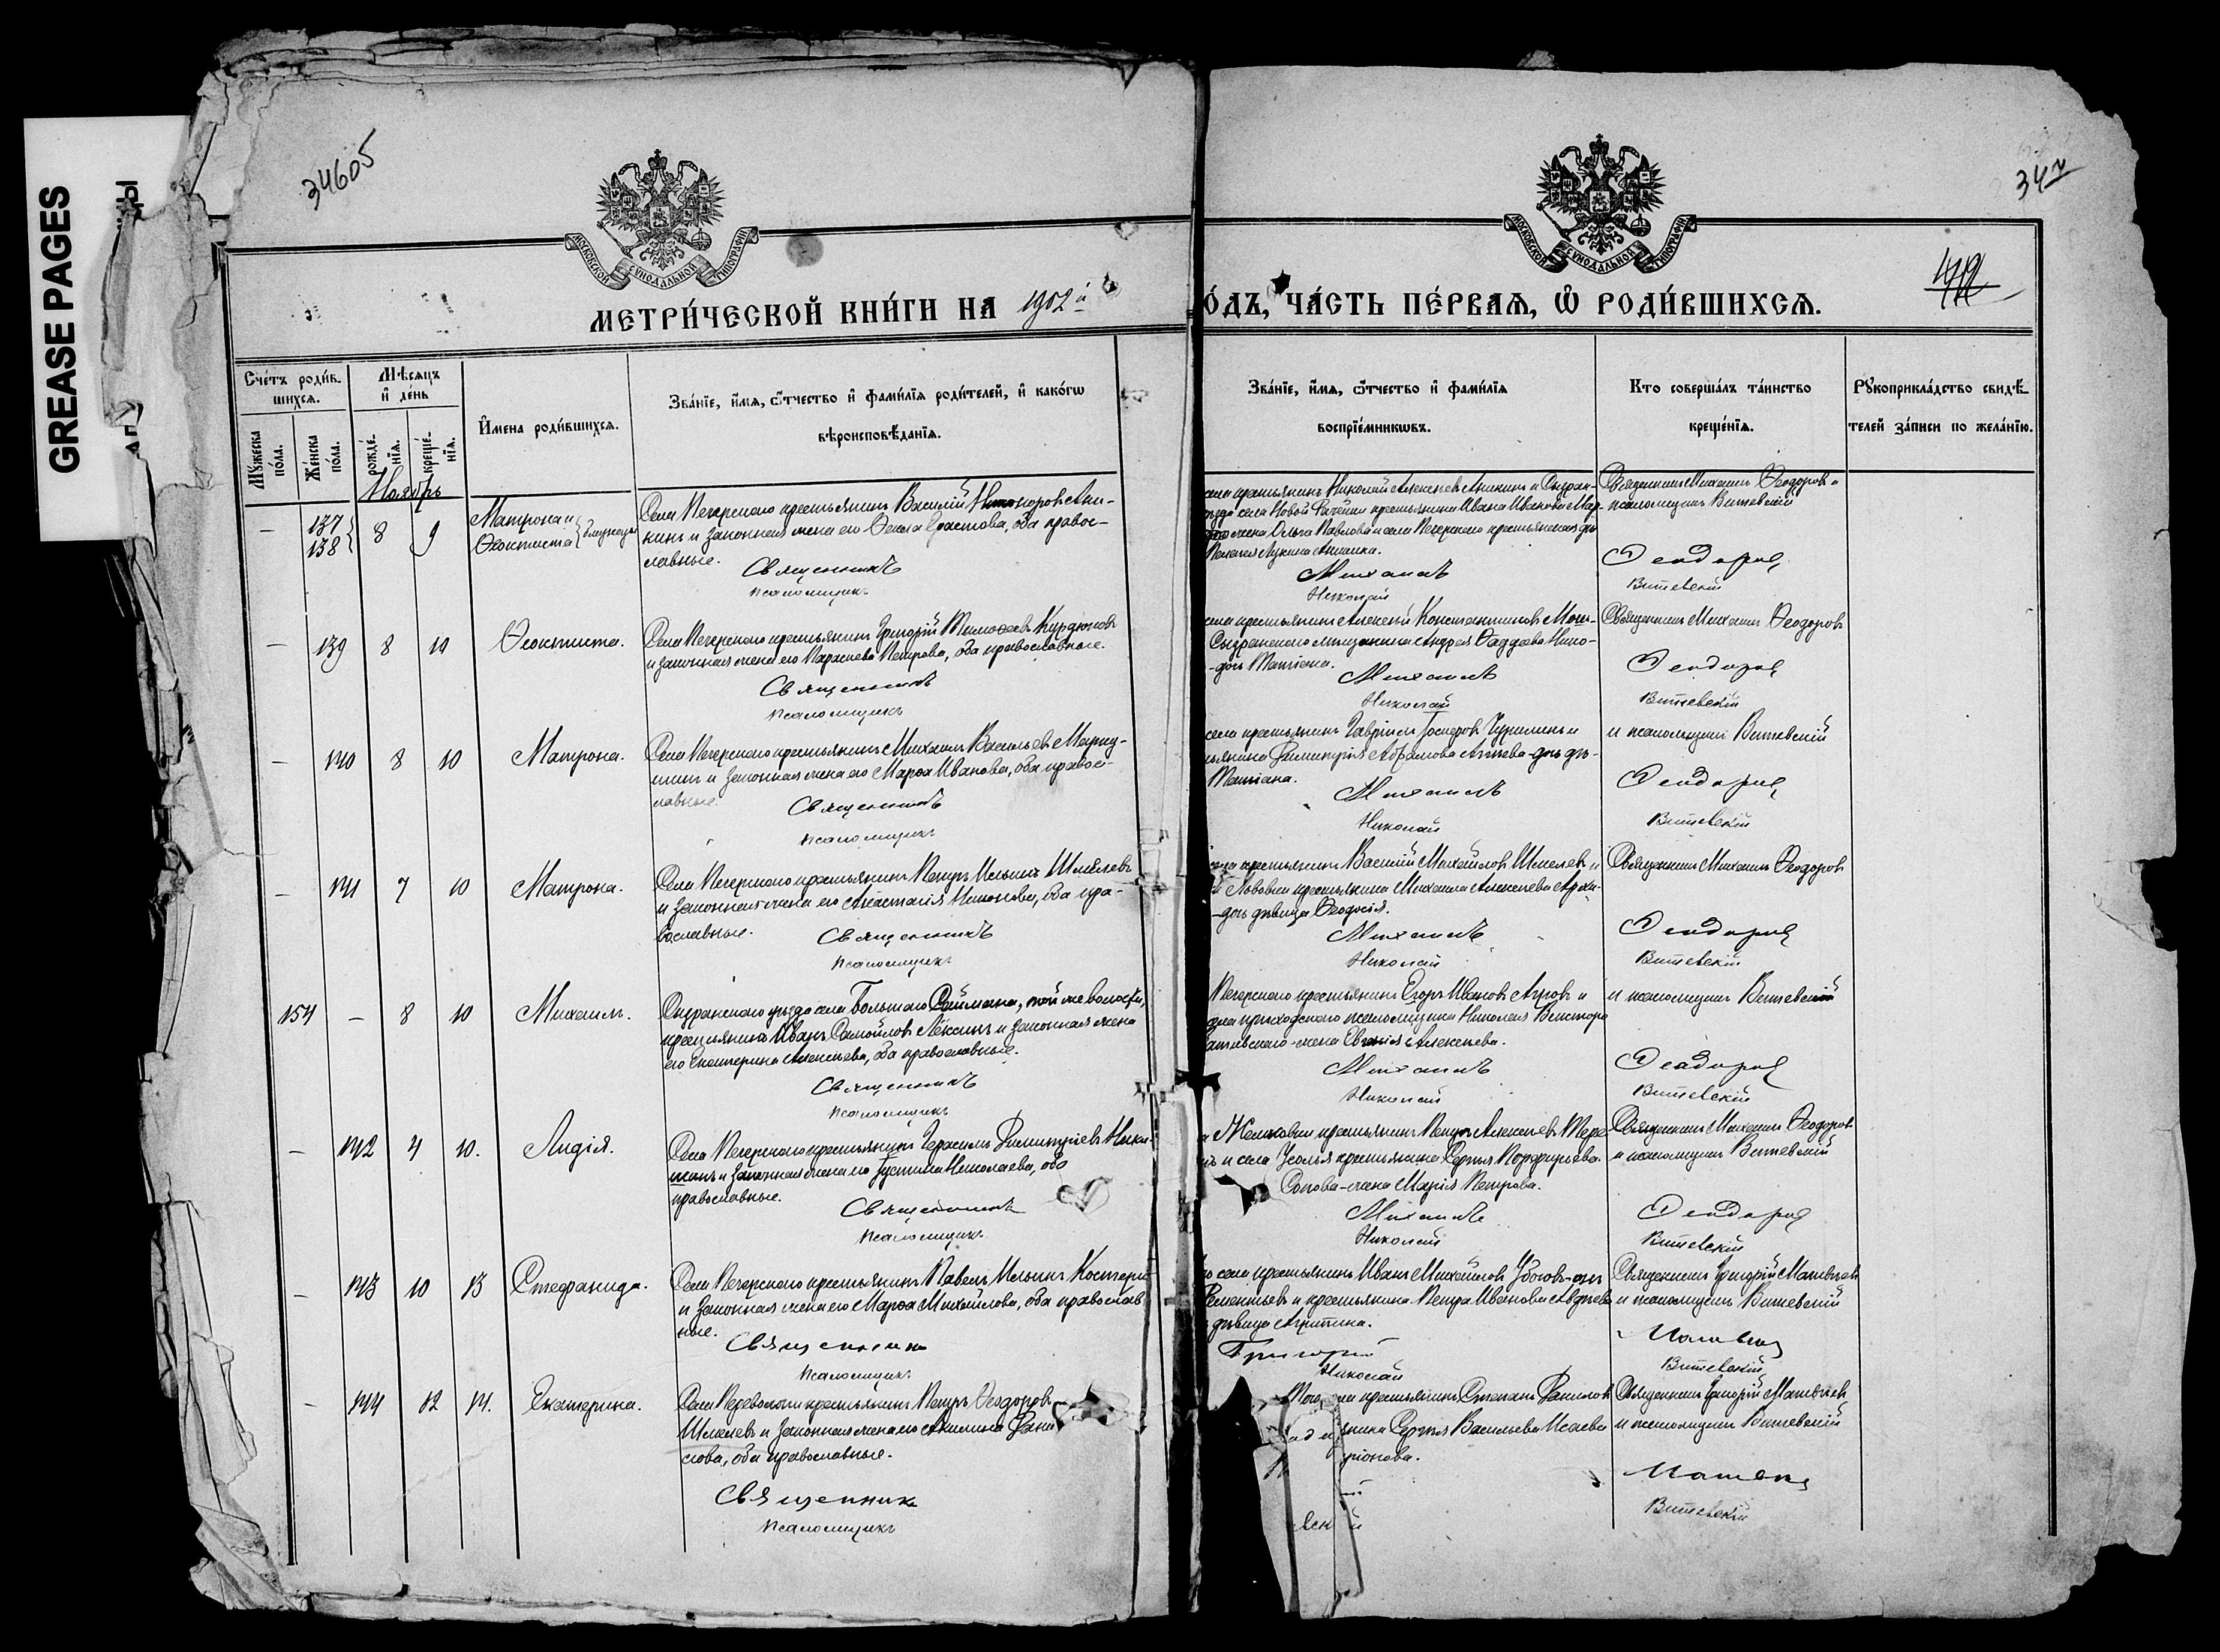 GREASE PAGES
34605
34
МОСКОВСКОЙ СУНОДАЛЬНОЙ ТИПОГРАФІИ
МОСКОВСКОЙ СУНОДАЛЬНОЙ ТИПОГРАФІИ
МЕТРИ́ЧЕСКОЙ КНИ́ГИ НА 1902й
О́ДЪ, ЧА́СТЬ ПЕ́РВАЯ, Ѿ РОДИ́ВШИХСЯ.
Сче́тъ роди́в-
шихся.
Мѣ́сяцъ
и̓ де́нь
Му́жеска
по́ла.
Же́нска
по́ла.
рожде́-
нїя.
креще́-
нїя.
И҆мена роди́вшихся.
Зва́нїе, и҆́мя, ѻ҆́тчество и҆ фами́лїя роди́телей, и҆ како́гѡ
вѣроисповѣ́данїя.
Зва́нїе, и҆́мя, ѻ҆́тчество и҆ фами́лїя
воспрїе́мникѡвъ.
Кто соверша́лъ та́инство
креще́нїя.
Рꙋкоприкла́дство свидѣ́-
телей за́писи по жела́нїю.
Ноябрь
— 137 138 8 9 Матрона и Ѳеоктиста близнецы
Села Печерскаго крестьянинъ Василій Никаноровъ Ани-
кинъ и законная жена его Ѳекла, оба правос-
лавные.
Священникъ
Псаломщикъ
села крестьянинъ Николай Алексѣевъ Аникинъ и Сызран-
уѣзда села Новой Рачейки крестьянина Ивана Иванова Мар-
жена Ольга Павлова и села Печерскаго крестьянская дѣв
Пелагея Лукина Аникина.
Михаилъ
Николай
Священникъ Михаилъ Ѳеодоровъ и
псаломщикъ Витевскій
Ѳеодоровъ
Витевскій
— 139 8 10 Ѳеоктиста.
Села Печерскаго крестьянинъ Григорій Тимоѳеевъ Курдюковъ
и законная жена его Параскева Петрова, оба православные.
Священникъ
Псаломщикъ
села крестьянинъ Алексѣй Константиновъ Мош-
Сызранскаго мѣщанина Андрея Ѳаддеева Нико-
-дочь Татіана.
Михаилъ
Николай
Священникъ Михаилъ Ѳеодоровъ
Ѳеодоровъ
Витевскій
— 140 8 10 Матрона.
Села Печерскаго крестьянинъ Михаилъ Васильевъ Марку-
шинъ и законная жена его Марѳа Иванова, оба правос-
лавные.
Священникъ
Псаломщикъ
села крестьянинъ Гавріилъ и
крестьянина Димитрія Абрамова Агѣева-дочь дѣ-
Татіана.
Михаилъ
Николай
и псаломщикъ Витевскій
Ѳеодоровъ
Витевскій
— 141 7 10 Матрона.
Села Печерскаго крестьянинъ Петръ Ильинъ Шмелевъ
и законная жена его Анастасія, оба пра-
вославные.
Священникъ
Псаломщикъ
села крестьянинъ Василій Михайловъ Шмелевъ и
Львовки крестьянина Михаила Алексѣева Архи-
-дочь дѣвица Ѳеодосія.
Михаилъ
Николай
Священникъ Михаилъ Ѳеодоровъ
Ѳеодоровъ
Витевскій
154 — 8 10 Михаилъ.
Сызранскаго уѣзда села Большаго, той же волости,
крестьянинъ Иванъ Самойловъ Лёксинъ и законная жена
его Екатерина Алексѣева, оба православные.
Священникъ
Псаломщикъ
Печерскаго крестьянинъ Егоръ Ивановъ и
села приходскаго псаломщика Николая Виктора
Витевскаго-жена Евгенія Алексѣева.
Михаилъ
Николай
и псаломщикъ Витевскій
Ѳеодоровъ
Витевскій
— 142 4 10. Лидія.
Села Печерскаго крестьянинъ Герасимъ Димитріевъ Ники-
шинъ и законная жена его Устина Николаева, оба
православные.
Священникъ
Псаломщикъ
Жемковки крестьянинъ Петръ Алексѣевъ Тере-
и села Усолья крестьянина Сергѣя Порфирьева
Сопова-жена Марія Петрова.
Михаилъ
Николай
Священникъ Михаилъ Ѳеодоровъ
и псаломщикъ Витевскій
Ѳеодоровъ
Витевскій
— 143 10 13 Стефанида.
Села Печерскаго крестьянинъ Павелъ Ильинъ Костери
и законная жена его Марѳа Михайлова, оба православ
ные.
Священникъ
Псаломщикъ
села крестьянинъ Иванъ Михайловъ
и крестьянина Петра Иванова Авдѣева
дѣвица Агрипина.
Григорій
Николай
Священникъ Григорій Матвѣевъ
и псаломщикъ Витевскій
Матвѣевъ
Витевскій
— 144 12 14. Екатерина.
Села Переволоки крестьянинъ Петръ Ѳеодоровъ
Шмелевъ и законная жена его Акилина Дани
лова, оба православные.
Священникъ
Псаломщикъ
села крестьянинъ Степанъ Даниловъ
Сергѣя Васильева Исаева
ріонова.
Священникъ Григорій Матвѣевъ
и псаломщикъ Витевскій
Матвѣевъ
Витевскій